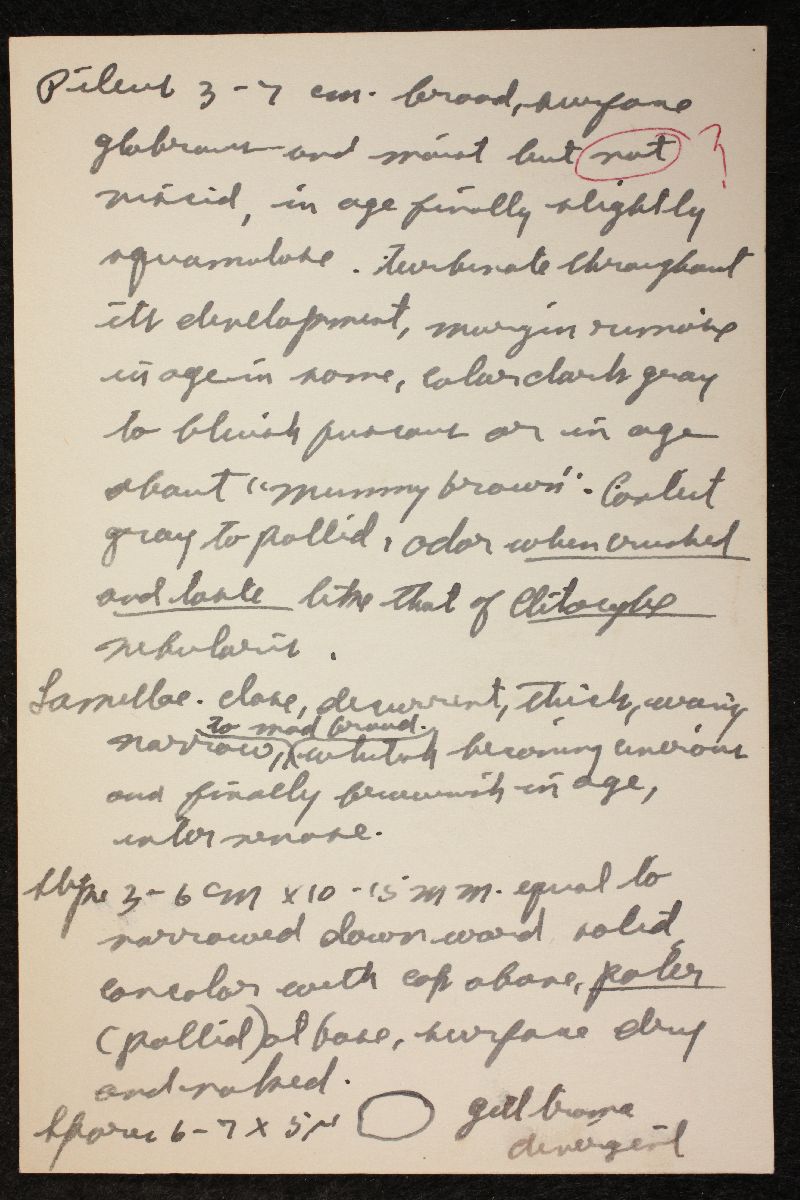 Pileus 3-7 cm. broad, surface
glabrous and moist but not ?
viscid, in age finally slightly
squamulose. Turbinate throughout
its development, margin rimose
in age in some, color dark gray
to bluish fuscous or in age
about "mummy brown". Context
gray to pallid, odor when crushed
and taste like that of Clitocybe
nebularis.
Lamellae. close, decurrent, thick, waxy
to mod broad.
narrow, whitish becoming cinereous
and finally brownish in age,
intervenose.
Stipe 3-6 cm x 10-15 mm. equal to
narrowed downward solid,
concolor with cap above, paler
(pallid) at base, surface dry
and naked.
Spores 6-7 x 5μ gill trama
divergent